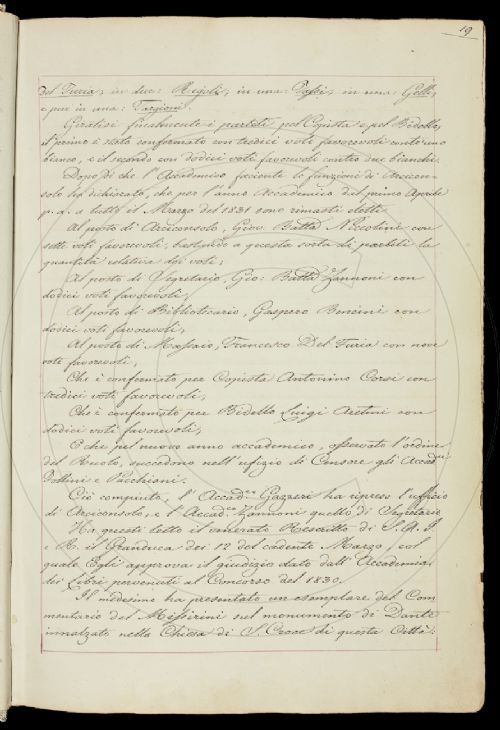 19
Del Furia; in due: Rigoli; in una: Poggi; in una: Gelli,
e pur in una: Targioni.
Giratisi finalmente i partiti pel Copista e pel Bidello,
il primo è stato confermato con tredici voti favorevoli contr'uno
bianco, e il secondo con dodici voti favorevoli contro due bianchi.
Dopo di che l'Accademico facente le funzioni di Arcicon-
solo ha dichiarato, che per l'anno Accademico dal primo Aprile
p. a. a tutto il Marzo del 1831 sono rimasti eletti
Al posto di Arciconsolo, Giov. Batta Niccolini con
sette voti favorevoli, bastando a questa sorta di partiti la
quantità relativa dei voti;
Al posto di Segretario, Gio: Batta Zannoni con
dodici voti favorevoli,
Al posto di Bibliotecario, Gaspero Bencini con
dodici voti favorevoli,
Al posto di Massaio, Francesco Del Furia con nove
voti favorevoli,
Che è confermato per Copista Antonino Corsi con
tredici voti favorevoli,
Che è confermato per Bidello Luigi Aretini con
dodici voti favorevoli,
E che pel nuovo anno accademico, osservato l'ordine
del Ruolo, succedono nell'ufizio di Censore gli Accad.ci
e Pacchiani.
Ciò compiuto, l'Accad.co Gazzeri ha ripreso l'uffizio
di Arciconsolo, e l'Accad.co Zannoni quello di Segretario
Ha questi letto il venerato Rescritto di S. A. I.
e R. il Granduca dei 12 del cadente Marzo, col
quale Egli approva il giudizio dato dall'Accademia
dei Libri pervenuti al Concorso del 1830.
Il medesimo ha presentato un esemplare del Com
mentario del Missirini sul monumento di Dante
innalzato nella Chiesa di S. Croce di questa Città: